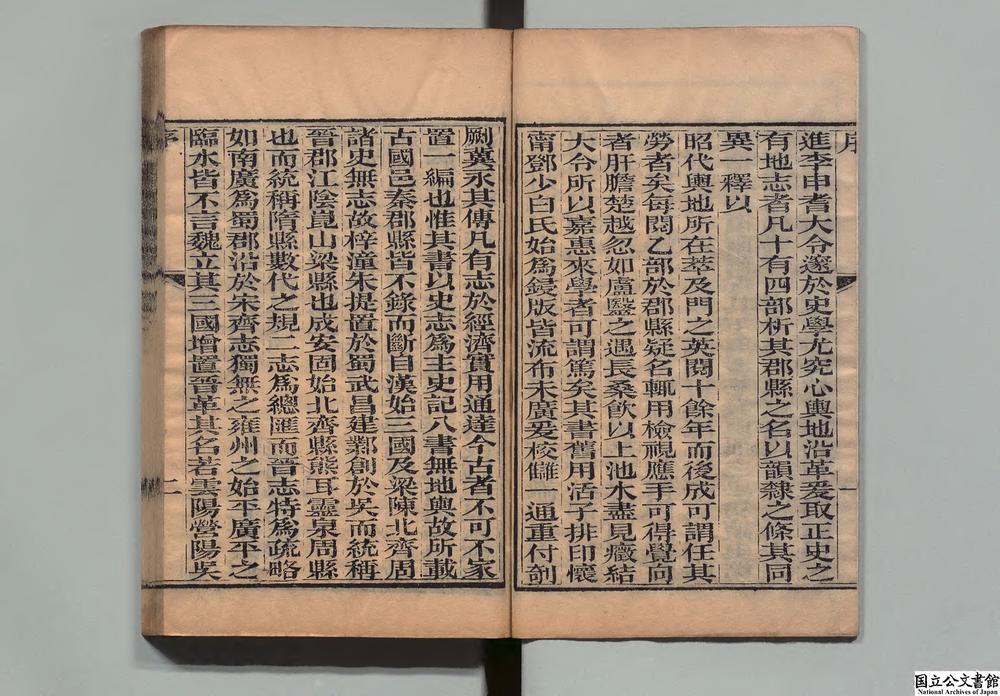 序
一
進李申耆大令邃於史學尤究心輿地沿革爰取正史之
有地志者凡十有四部析其郡縣之名以韻隸之條其同
異一釋以
昭代輿地所在萃及門之英閱十餘年而後成可謂任其
勞者矣每閱乙部於郡縣疑名輒用檢視應手可得覺向
者肝膽楚越忽如盧醫之遇長桑飲以上池水盡見癥結
大令所以嘉惠來學者可謂篤矣其書舊用活子排印懷
甯鄧少白氏始為鋟版皆流布未廣爰校讎一通重付剞
劂冀永其傳凡有志於經濟實用通達今古者不可不家
置一編也惟其書以史志為主史記八書無地輿故所載
古國邑秦郡縣皆不錄而斷自漢始三國及梁陳北齊周
諸史無志故梓潼朱提置於蜀武昌建鄴創於吳而統稱
晉郡江陰崑山梁縣也成安固始北齊縣熊耳靈泉周縣
也而統稱隋縣數代之規二志為總匯而晉志特為疏略
如南廣為蜀郡沿於宋齊志獨無之雍州之始平廣平之
臨水皆不言魏立其三國增置晉革其名若雲陽營陽吳
序
二
国立公文書館
National Archives of Japan